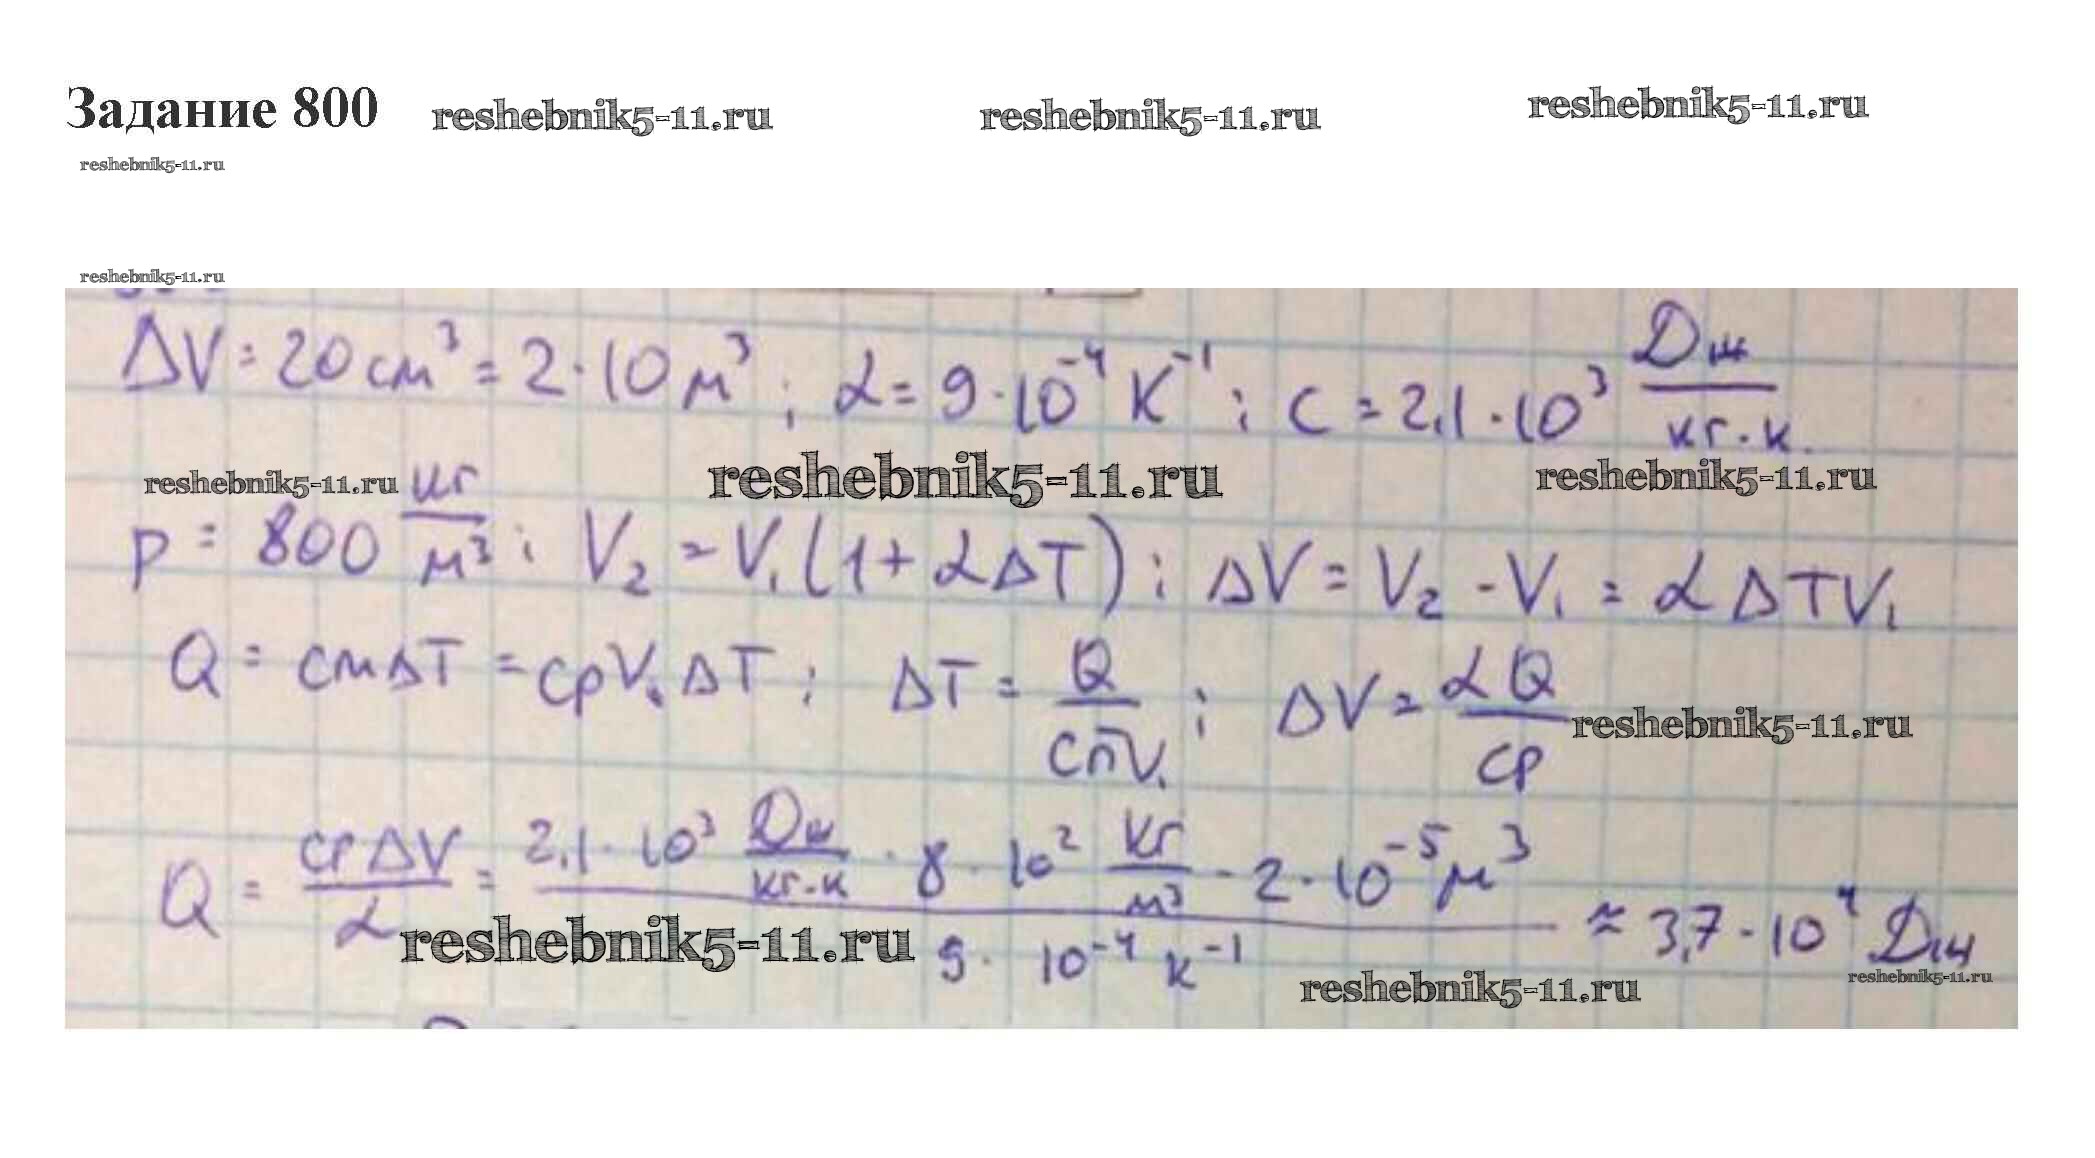 Задание 800 reshebnik5-11.ru reshebnik5-11.ru reshebnik5-11.ru
reshebnik5-11.ru
reshebnik5-11.ru
ΔV = 20 см³ = 2·10 м³ ; α = 9·10⁻⁴ К⁻¹ ; c = 2,1·10³ Дж/кг·К.
reshebnik5-11.ru reshebnik5-11.ru reshebnik5-11.ru
ρ = 800 кг/м³ ; V₂ = V₁(1 + αΔT) ; ΔV = V₂ - V₁ = αΔTV₁
Q = cmΔT = cρV₁ΔT ; ΔT = Q/cπV₁ ; ΔV = αQ/cρ
reshebnik5-11.ru
Q = cρΔV/α = 2,1·10³ Дж/кг·К · 8·10² кг/м³ · 2·10⁻⁵ м³ / 9·10⁻⁴ К⁻¹ ≈ 3,7·10⁴ Дж
reshebnik5-11.ru reshebnik5-11.ru reshebnik5-11.ru